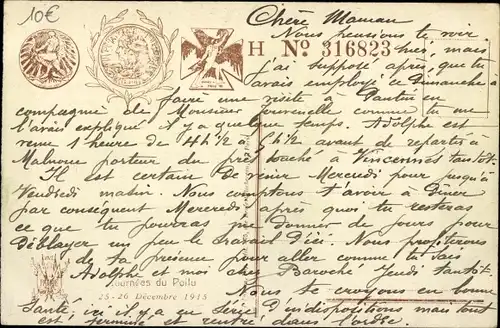 10€
Chère Maman
H No 316823
Nous pensions te voir
hier, mais
j'ai supposé après, que tu
avais employé ce Dimanche à
faire une visite à Pantin en
compagnie de Monsieur comme tu me
l'avais expliqué il y a quelque temps. Adolphe est
venu 1 heure de 4h 1/2 à 5h 1/2 avant de repartir à
Malnoue porteur du prêt touché à Vincennes
Il est certain de venir Mercredi pour jusqu'à
Vendredi matin. Nous comptons t'avoir à Dîner
par conséquent Mercredi, après quoi tu resteras
ce que tu pourras me donner de jours pour
Déblayer un peu le travail D'ici. Nous profiterons
de ta présence pour aller comme tu sais
Adolphe et moi chez Baroché Jeudi
Journées du Poilu
25-26 Décembre 1915
Nous te croyons en bonne
Santé, ici il y a eu Série d'indispositions mais tout
est terminé et rentré dans l'ordre.